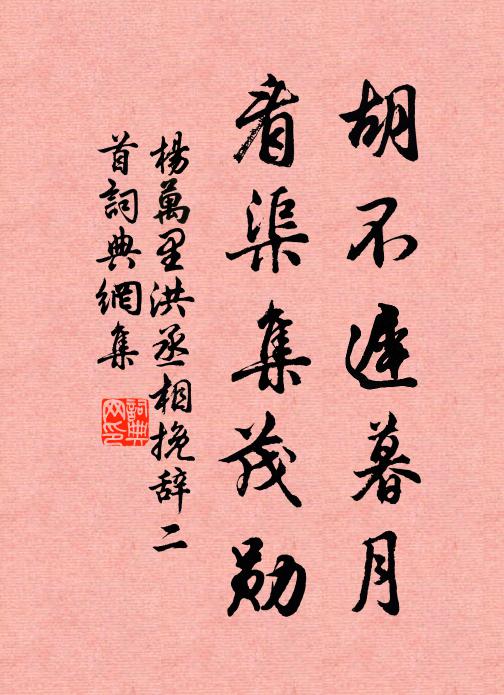 胡不遲暮月
看渠集茂勋
楊萬里洪丞相挽辞二
首詞典網集
詞典
网印